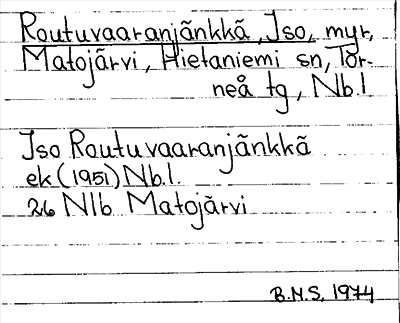 Routuvaaranjänkkä, Iso, myr,
Matojärvi, Hietaniemi sn, Tor-
neå tg, Nb.l
Iso Routuvaaranjänkkä
ek (1951) Nb.l.
26 Nlb Matojärvi
B.M.S, 1974